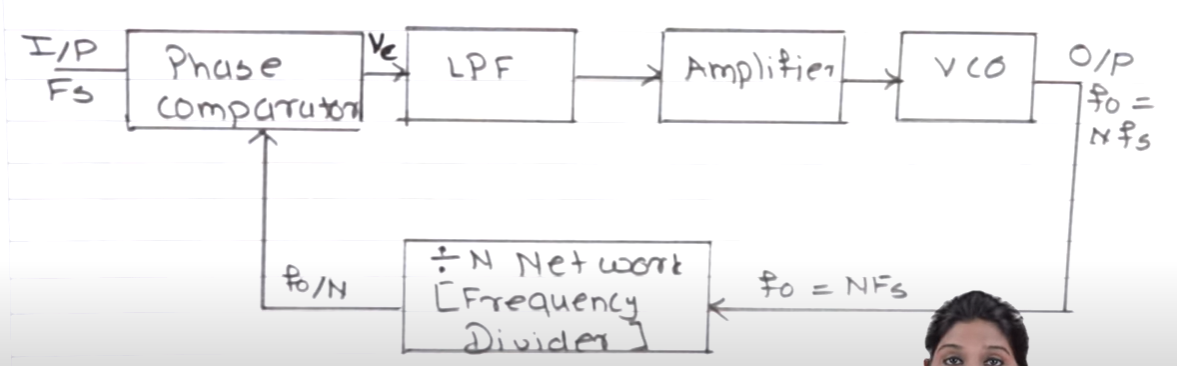 I/P
Fs
Phase
comparator
Ve
LPF
Amplifier
VCO
O/P
fo =
Nfs
fo/N
÷N Network
[Frequency
Divider]
fo = NFs